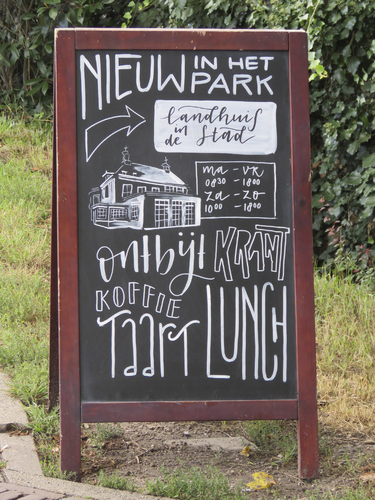 NIEUW IN HET
PARK
landhuis
in de Stad
ma - vr
0830 - 1800
za - zo
1000 - 1800
ontbijt KRANT
KOFFIE
Taart LUNCH